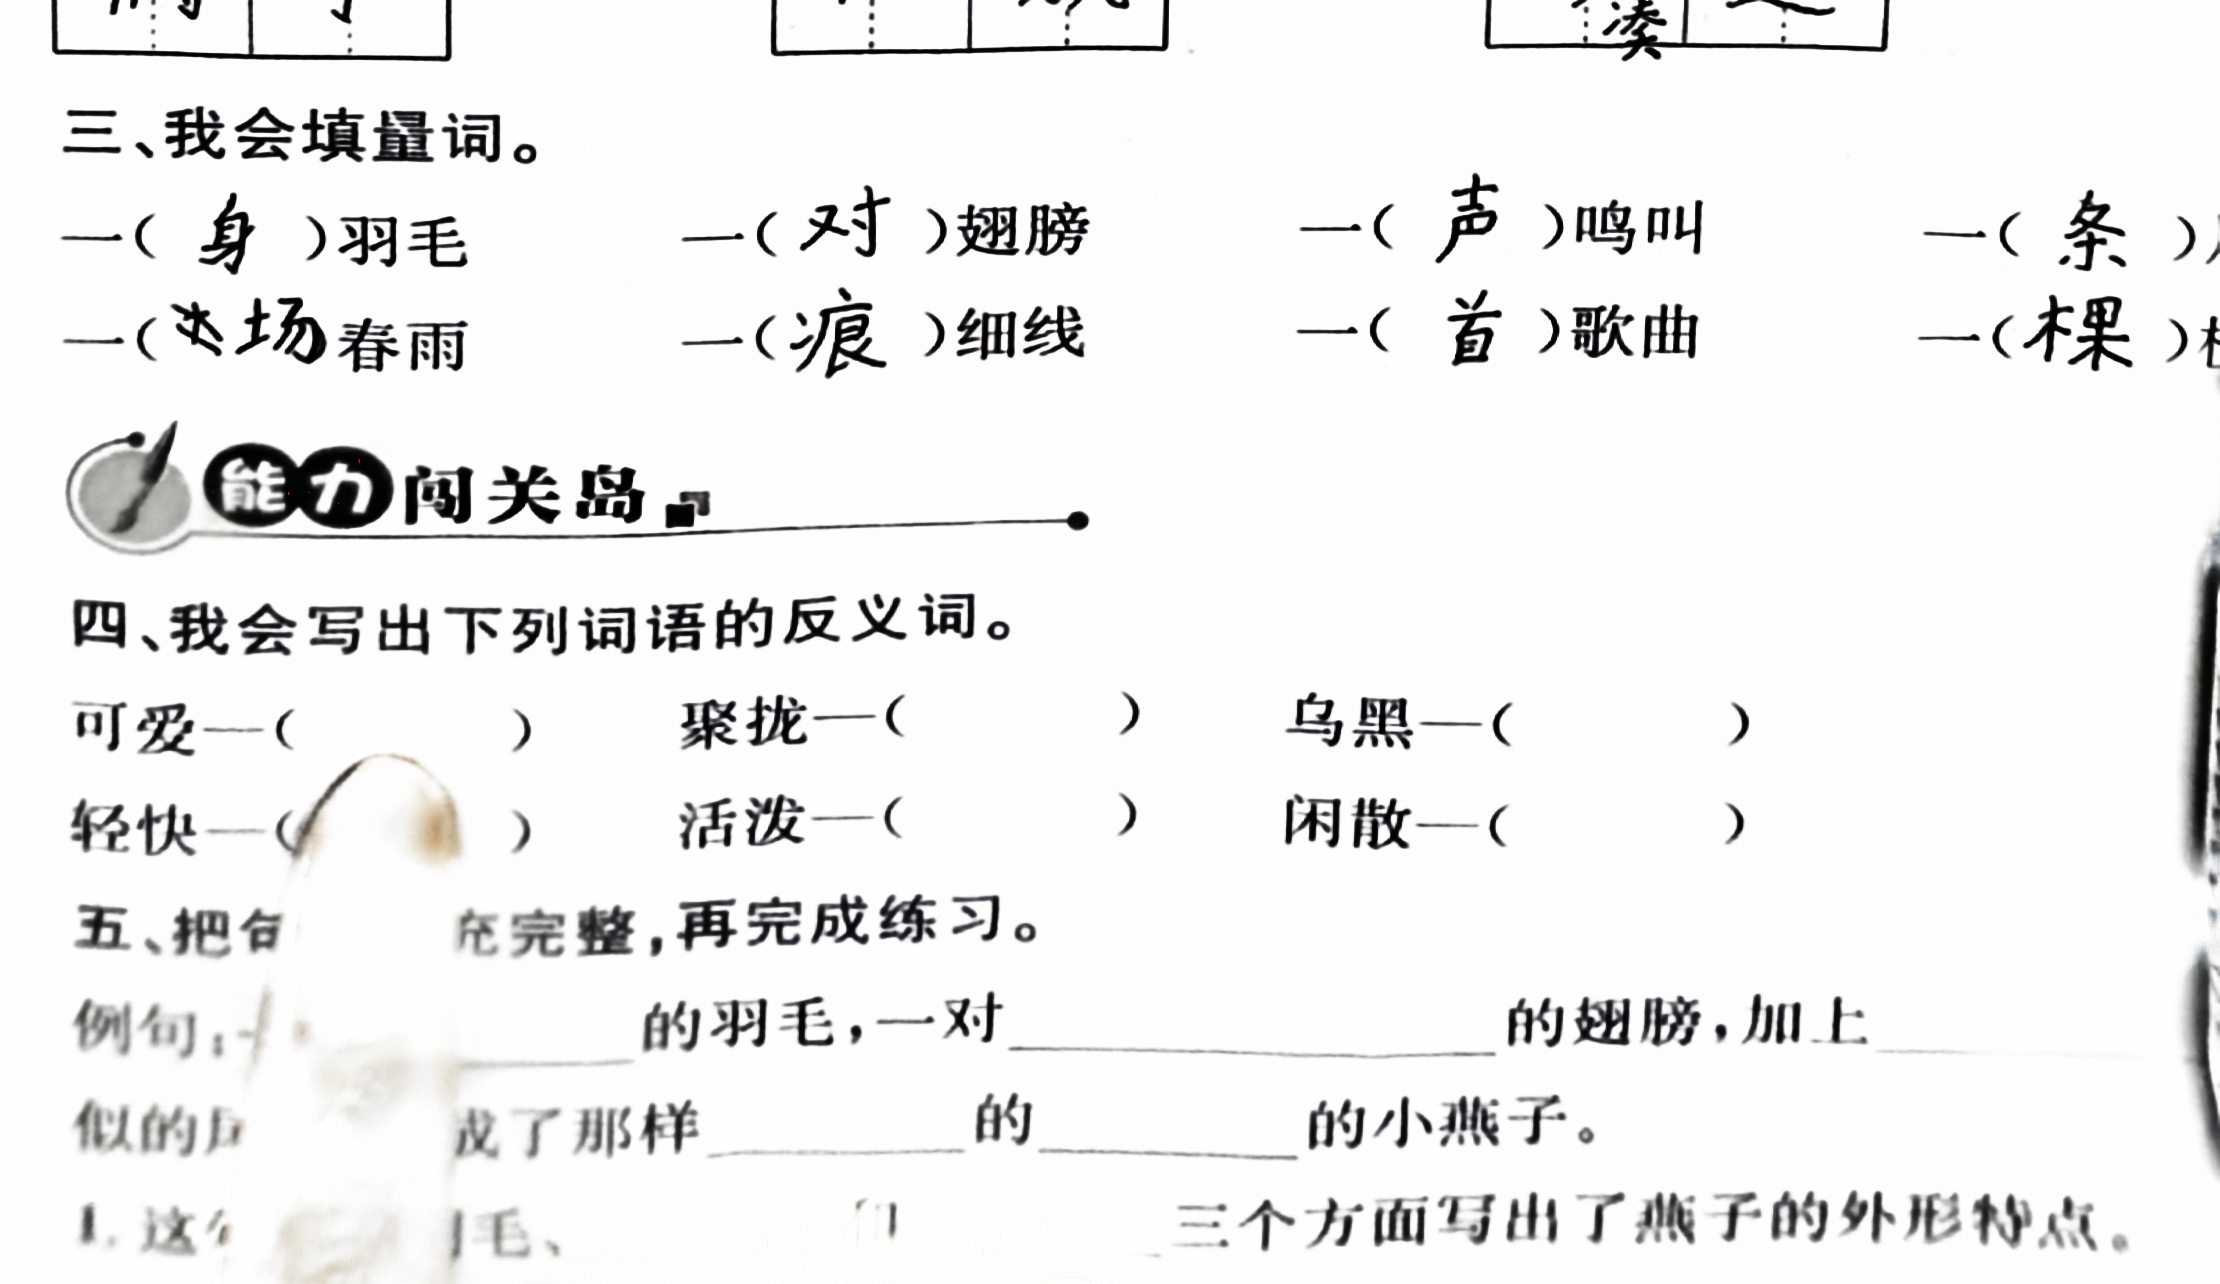 凑
三、我会填量词。
一(身)羽毛 一(对)翅膀 一(声)鸣叫 一(条)
一(场春雨 一(痕)细线 一(首)歌曲 一(棵)
能力闯关岛
四、我会写出下列词语的反义词。
可爱—( ) 聚拢—( ) 乌黑—( )
轻快—( ) 活泼—( ) 闲散—( )
五、把句 充完整,再完成练习。
例句: 的羽毛,一对 的翅膀,加上
似的 成了那样 的 的小燕子。
1. 这 毛、 三个方面写出了燕子的外形特点。